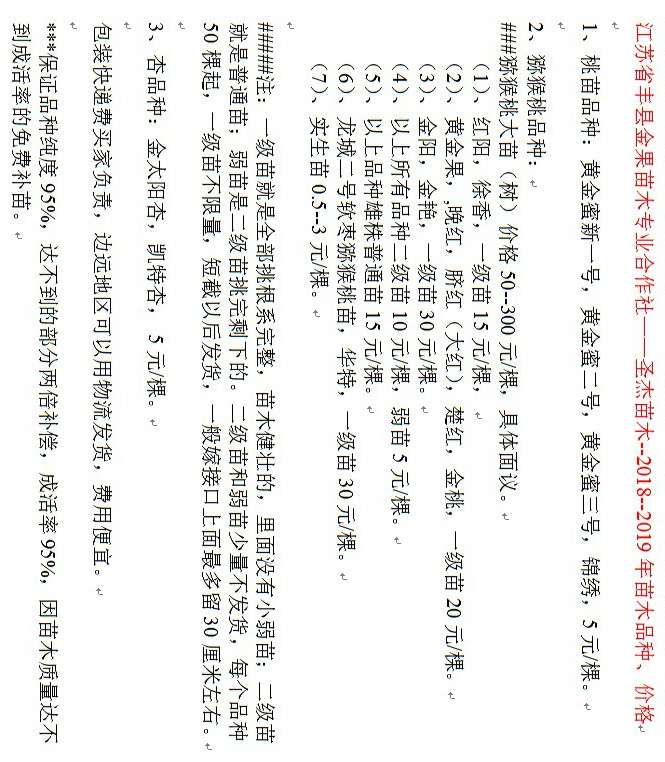 江苏省丰县金果苗木专业合作社——圣杰苗木--2018--2019 年苗木品种、价格
1、桃苗品种：黄金蜜新一号，黄金蜜二号，黄金蜜三号，锦绣，5 元/棵。
2、猕猴桃品种：
###猕猴桃大苗（树）价格 50--300 元/棵，具体面议。
（1）、红阳，徐香，一级苗 15 元/棵，
（2）、黄金果，,晚红，脐红（大红），楚红，金桃，一级苗 20 元/棵。
（3）、金阳，金艳，一级苗 30 元/棵。
（4）、以上所有品种二级苗 10 元/棵，弱苗 5 元/棵。
（5）、以上品种雄株普通苗 15 元/棵。
（6）、龙城二号软枣猕猴桃苗，华特，一级苗 30 元/棵。
（7）、实生苗 0.5--3 元/棵。
#####注：一级苗就是全部挑根系完整，苗木健壮的，里面没有小弱苗；二级苗
就是普通苗；弱苗是二级苗挑完剩下的。二级苗和弱苗少量不发货，每个品种
50 棵起，一级苗不限量，短截以后发货，一般嫁接口上面最多留 30 厘米左右。
3、杏品种：金太阳杏，凯特杏，5 元/棵。
包装快递费买家负责，边远地区可以用物流发货，费用便宜。
***保证品种纯度 95%，达不到的部分两倍补偿，成活率 95%，因苗木质量达不
到成活率的免费补苗。